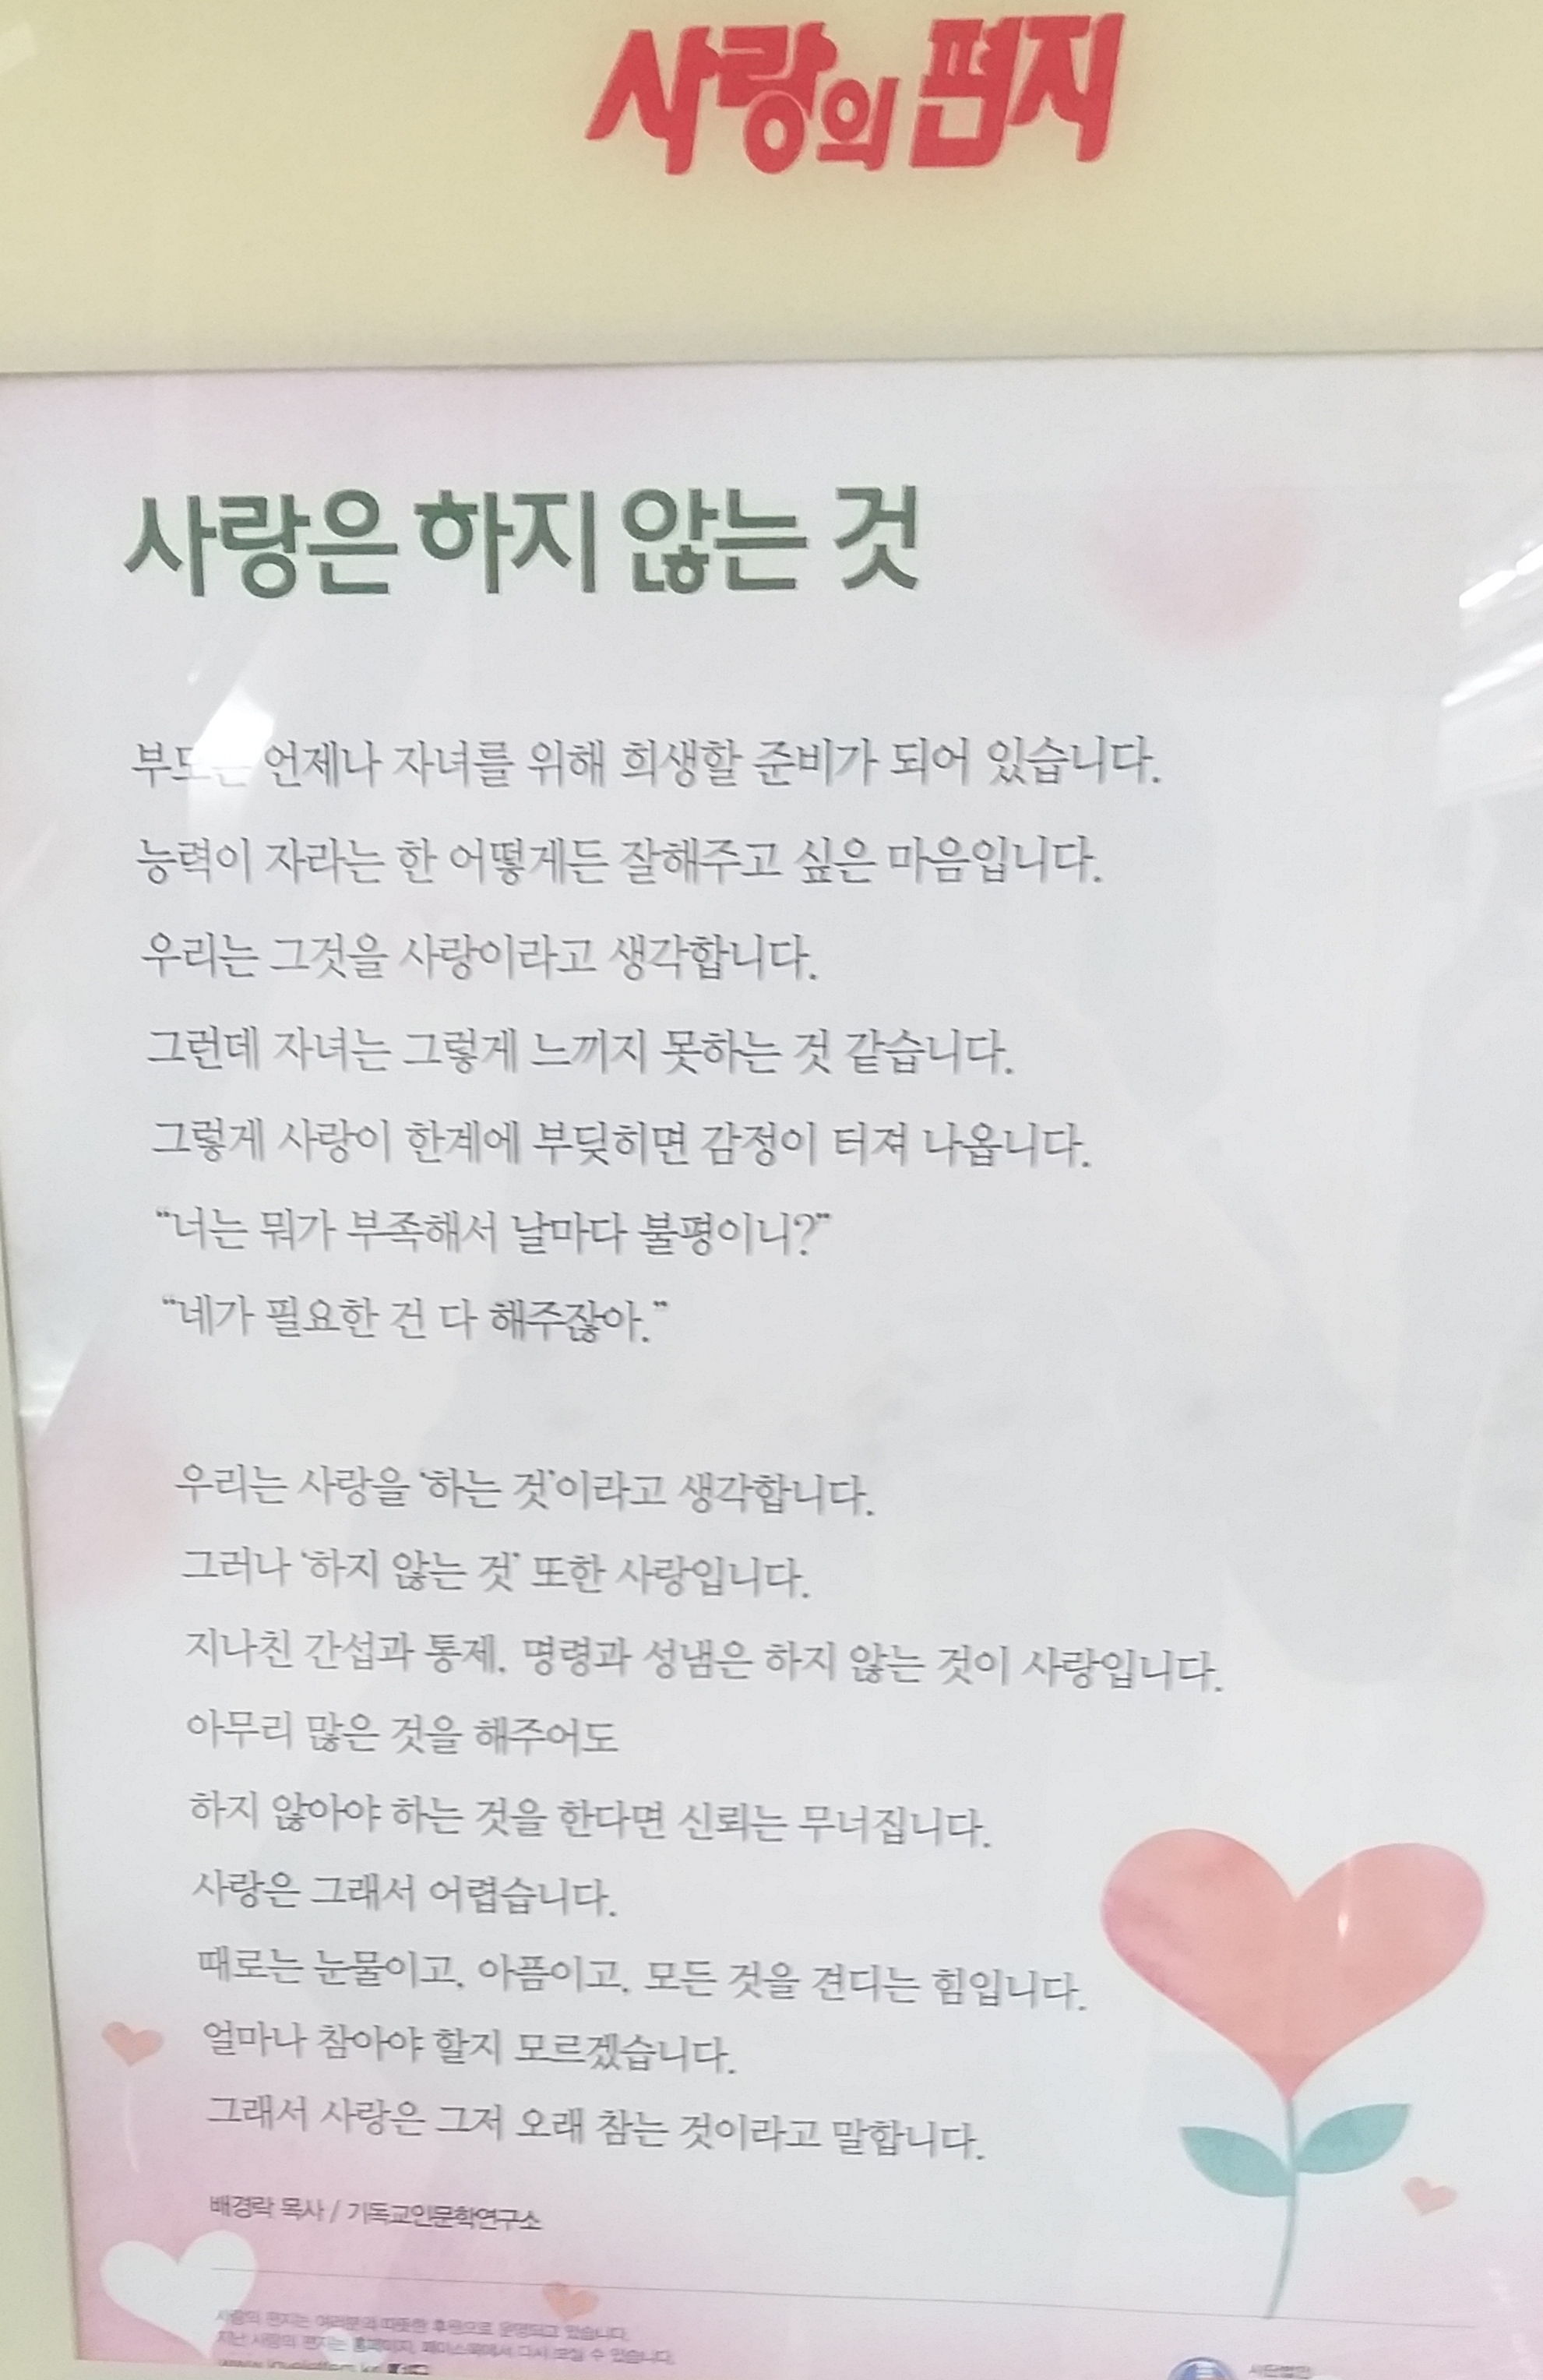 사랑의 편지
사랑은 하지 않는 것
언제나 자녀를 위해 희생할 준비가 되어 있습니다.
능력이 자라는 한 어떻게든 잘해주고 싶은 마음입니다.
우리는 그것을 사랑이라고 생각합니다.
그런데 자녀는 그렇게 느끼지 못하는 것 같습니다.
그렇게 사랑이 한계에 부딪히면 감정이 터져 나옵니다.
“너는 뭐가 부족해서 날마다 불평이니?”
“네가 필요한 건 다 해주잖아.”
우리는 사랑을 ‘하는 것’이라고 생각합니다.
그러나 ‘하지 않는 것’ 또한 사랑입니다.
지나친 간섭과 통제, 명령과 성냄은 하지 않는 것이 사랑입니다.
아무리 많은 것을 해주어도
하지 않아야 하는 것을 한다면 신뢰는 무너집니다.
사랑은 그래서 어렵습니다.
때로는 눈물이고, 아픔이고, 모든 것을 견디는 힘입니다.
얼마나 참아야 할지 모르겠습니다.
그래서 사랑은 그저 오래 참는 것이라고 말합니다.
배경락 목사 / 기독교인문학연구소
사랑의 편지는 여러분의 따뜻한 후원으로 운영되고 있습니다.
지난 사랑의 편지는 홈페이지, 페이스북에서 다시 보실 수 있습니다.
사단법인